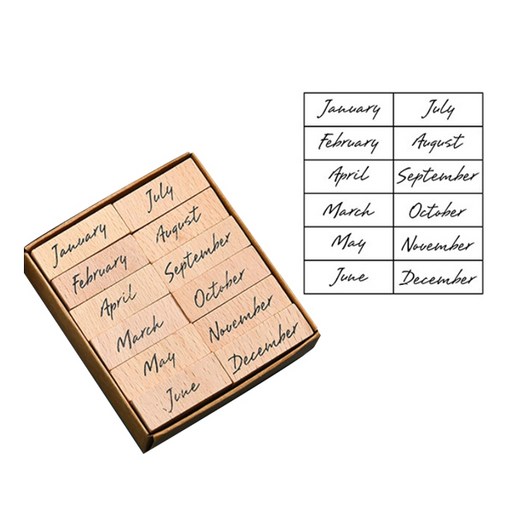 January July
February August
April September
March October
May November
June December
January July
February August
April September
March October
May November
June December